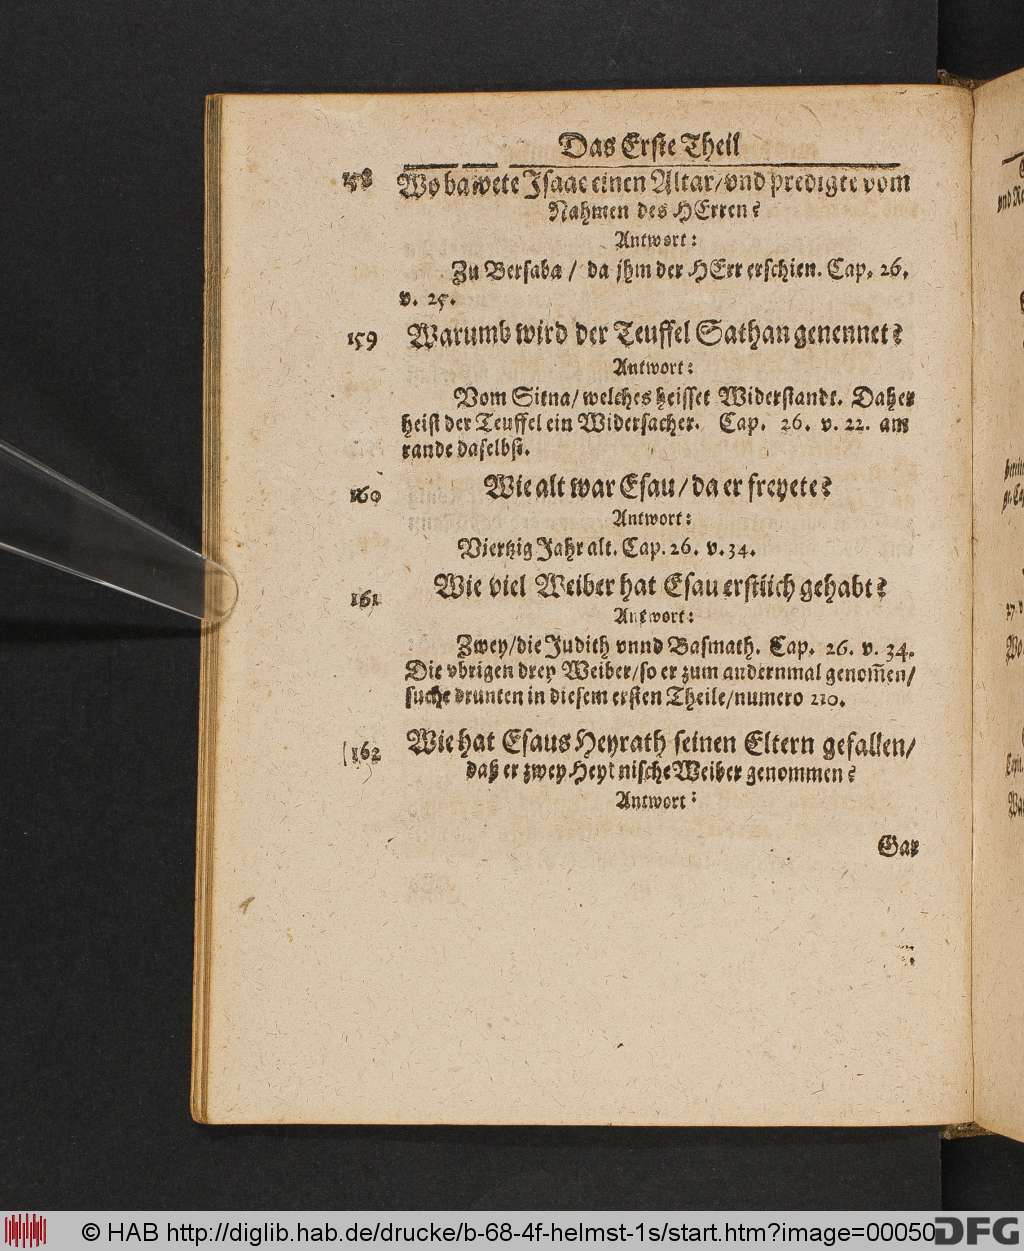 Das Erste Theil
158 Wo bawete Isaac einen Altar/ vnd predigte vom
Nahmen des HErren?
Antwort:
Zu Bersaba / da jhm der HErr erschien. Cap. 26.
v. 25.
159 Warumb wird der Teuffel Sathan genennet?
Antwort:
Vom Sitna/ welches heisset Widerstandt. Daher
heist der Teuffel ein Widersacher. Cap. 26. v. 22. am
rande daselbst.
160 Wie alt war Esau / da er freyete?
Antwort:
Viertzig Jahr alt. Cap. 26. v. 34.
161 Wie viel Weiber hat Esau erstlich gehabt?
Antwort:
Zwey/ die Judith vnnd Basmath. Cap. 26. v. 34.
Die vbrigen drey Weiber/ so er zum andernmal genom̃en/
suche drunten in diesem ersten Theile/ numero 210.
162 Wie hat Esaus Heyrath seinen Eltern gefallen/
daß er zwey Heydnische Weiber genommen?
Antwort:
Gar
© HAB http://diglib.hab.de/drucke/b-68-4f-helmst-1s/start.htm?image=00050
DFG